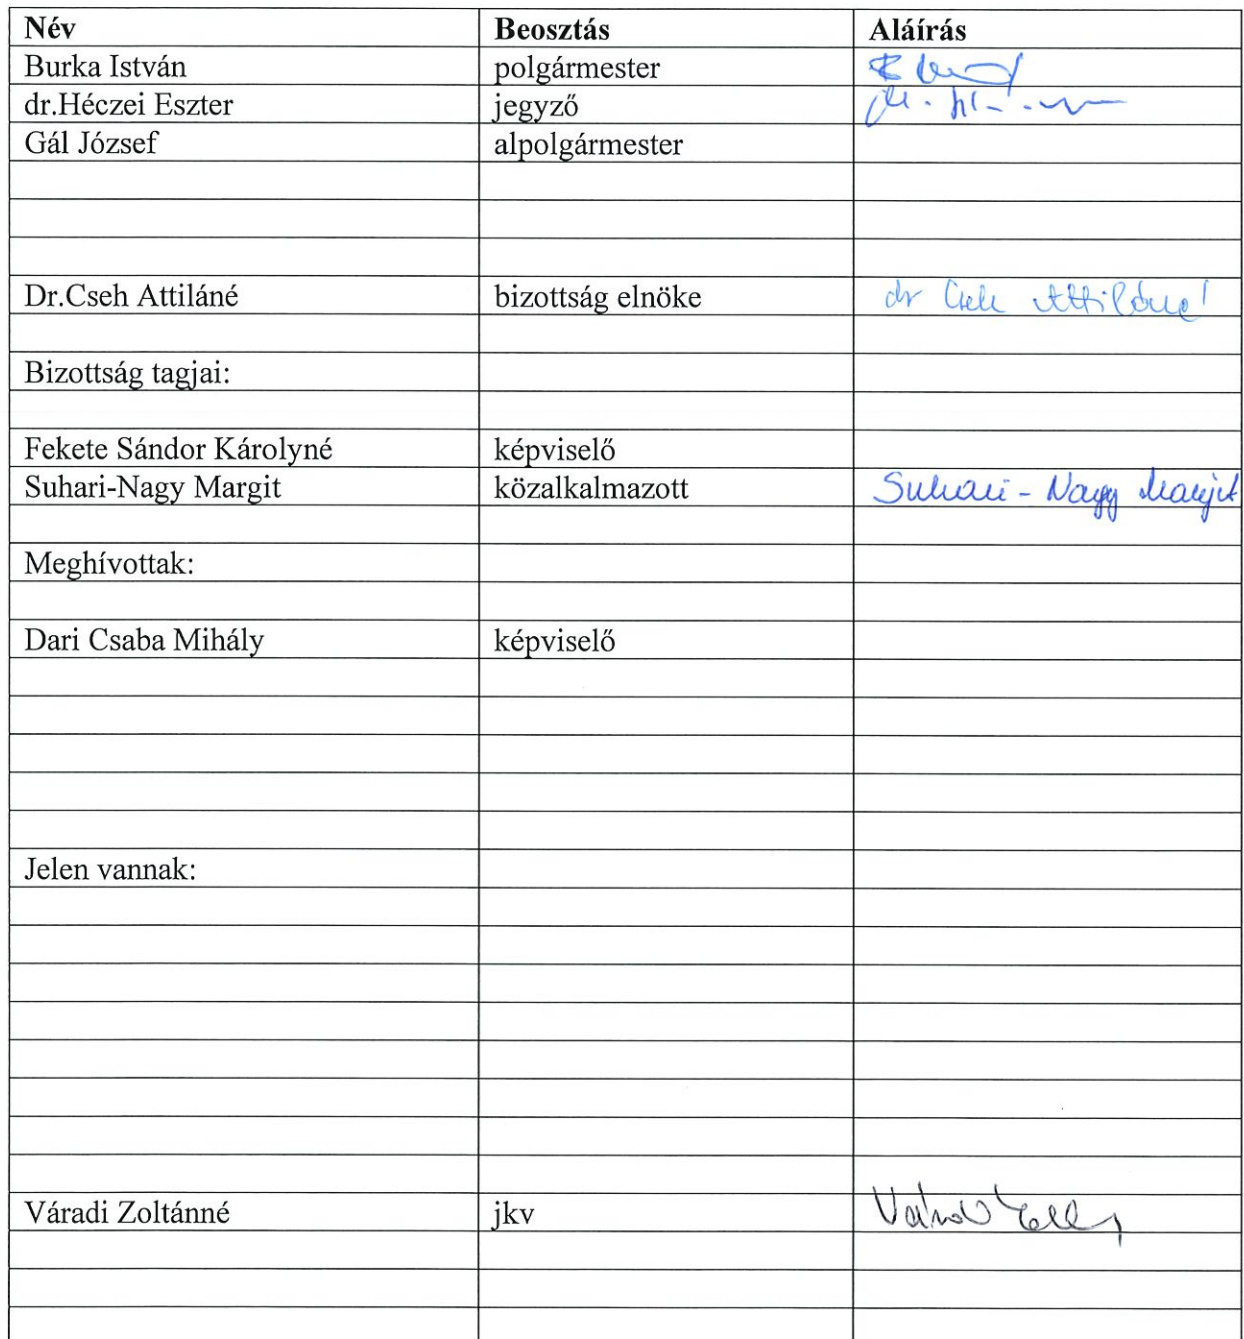 Név Beosztás Aláírás
Burka István polgármester
dr.Héczei Eszter jegyző
Gál József alpolgármester
Dr.Cseh Attiláné bizottság elnöke dr Cseh Attiláné
Bizottság tagjai:
Fekete Sándor Károlyné képviselő
Suhari-Nagy Margit közalkalmazott Suhari-Nagy Margit
Meghívottak:
Dari Csaba Mihály képviselő
Jelen vannak:
Váradi Zoltánné jkv